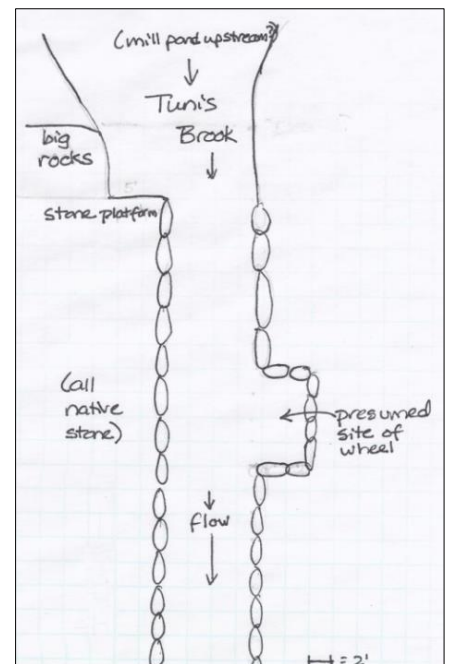 (mill pond upstream?)
Tunis
Brook
big
rocks
5'
stone platform
(all
native
stone)
presumed
site of
wheel
flow
= 2'